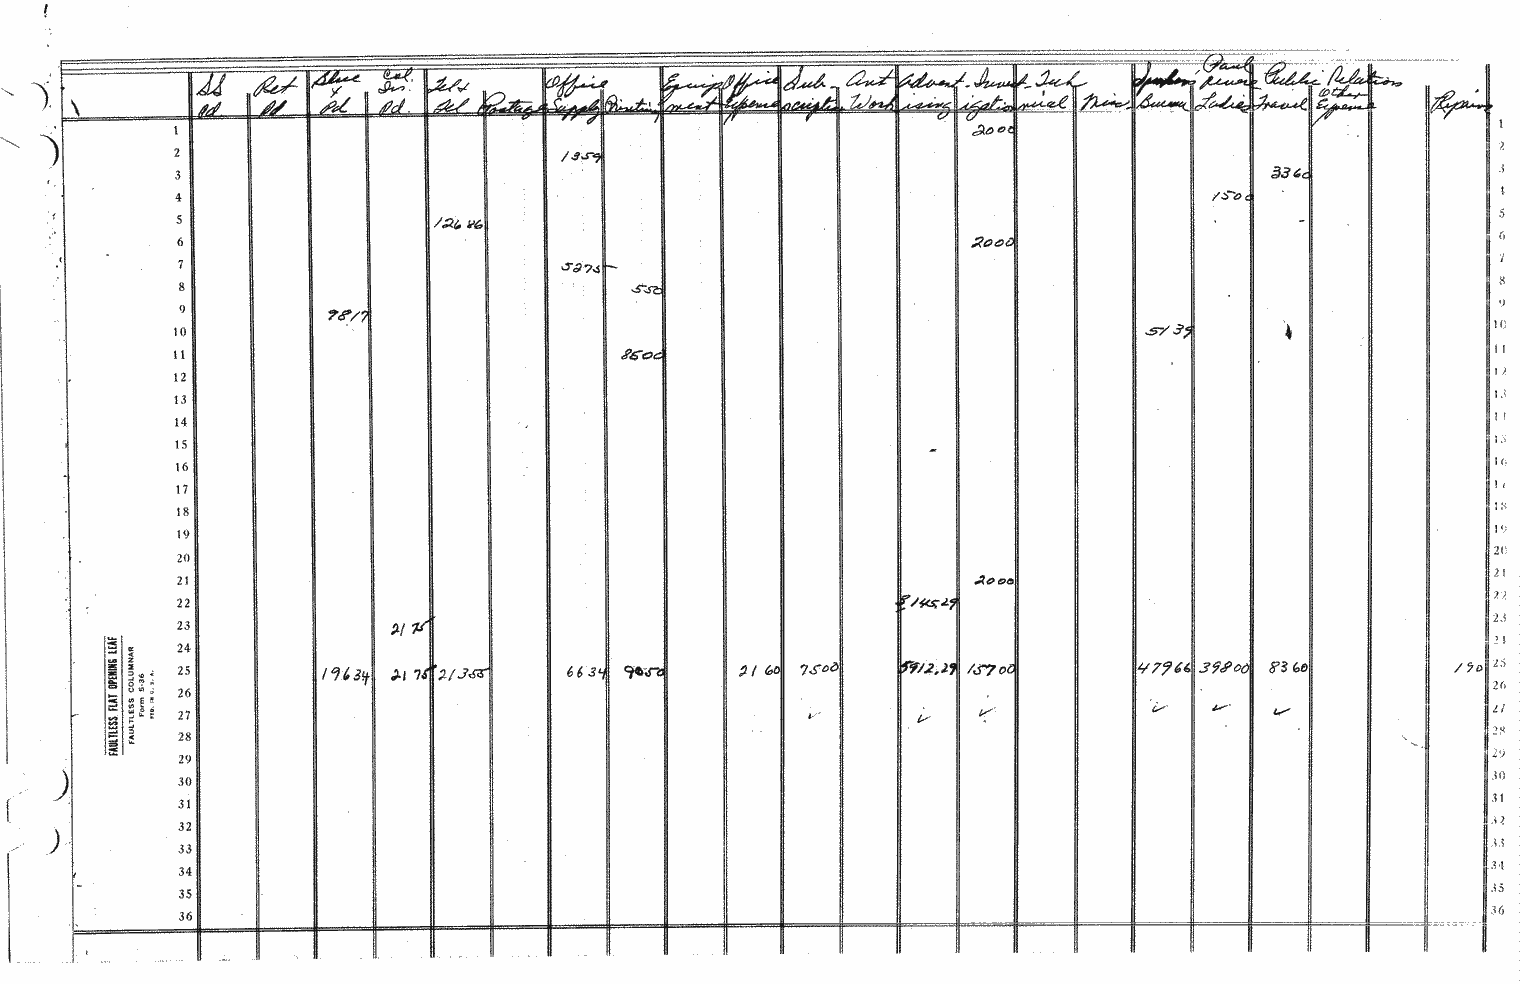 SS Ret Blue Col. Tel & Office Equip Office Sub- Art Advert- Invest- Tech Speakers Paul Revere Public Relation
Pd Pd. x Pd Ins. Pd. Tel. Postage Supply Printing ment Expense scription Work ising igation nical Mis- Bureau Ladies Travel Other Expense Repairs
1 2000 1
2 1359 2
3 3360 3
4 1500 4
5 12686 5
6 2000 6
7 5275 7
8 550 8
9 9817 9
10 5139 10
11 8500 11
12 12
13 13
14 14
15 15
16 16
17 17
18 18
19 19
20 20
21 2000 21
22 145.29 22
23 2175 23
24 24
25 19634 2175 21355 6634 9050 2160 7500 5912.29 15700 47966 39800 8360 190 25
26 26
27 ✓ ✓ ✓ ✓ ✓ ✓ 27
28 28
29 29
30 30
31 31
32 32
33 33
34 34
35 35
36 36
FAULTLESS FLAT OPENING LEAF
FAULTLESS COLUMNAR
Form S-36
PTD. IN U.S.A.